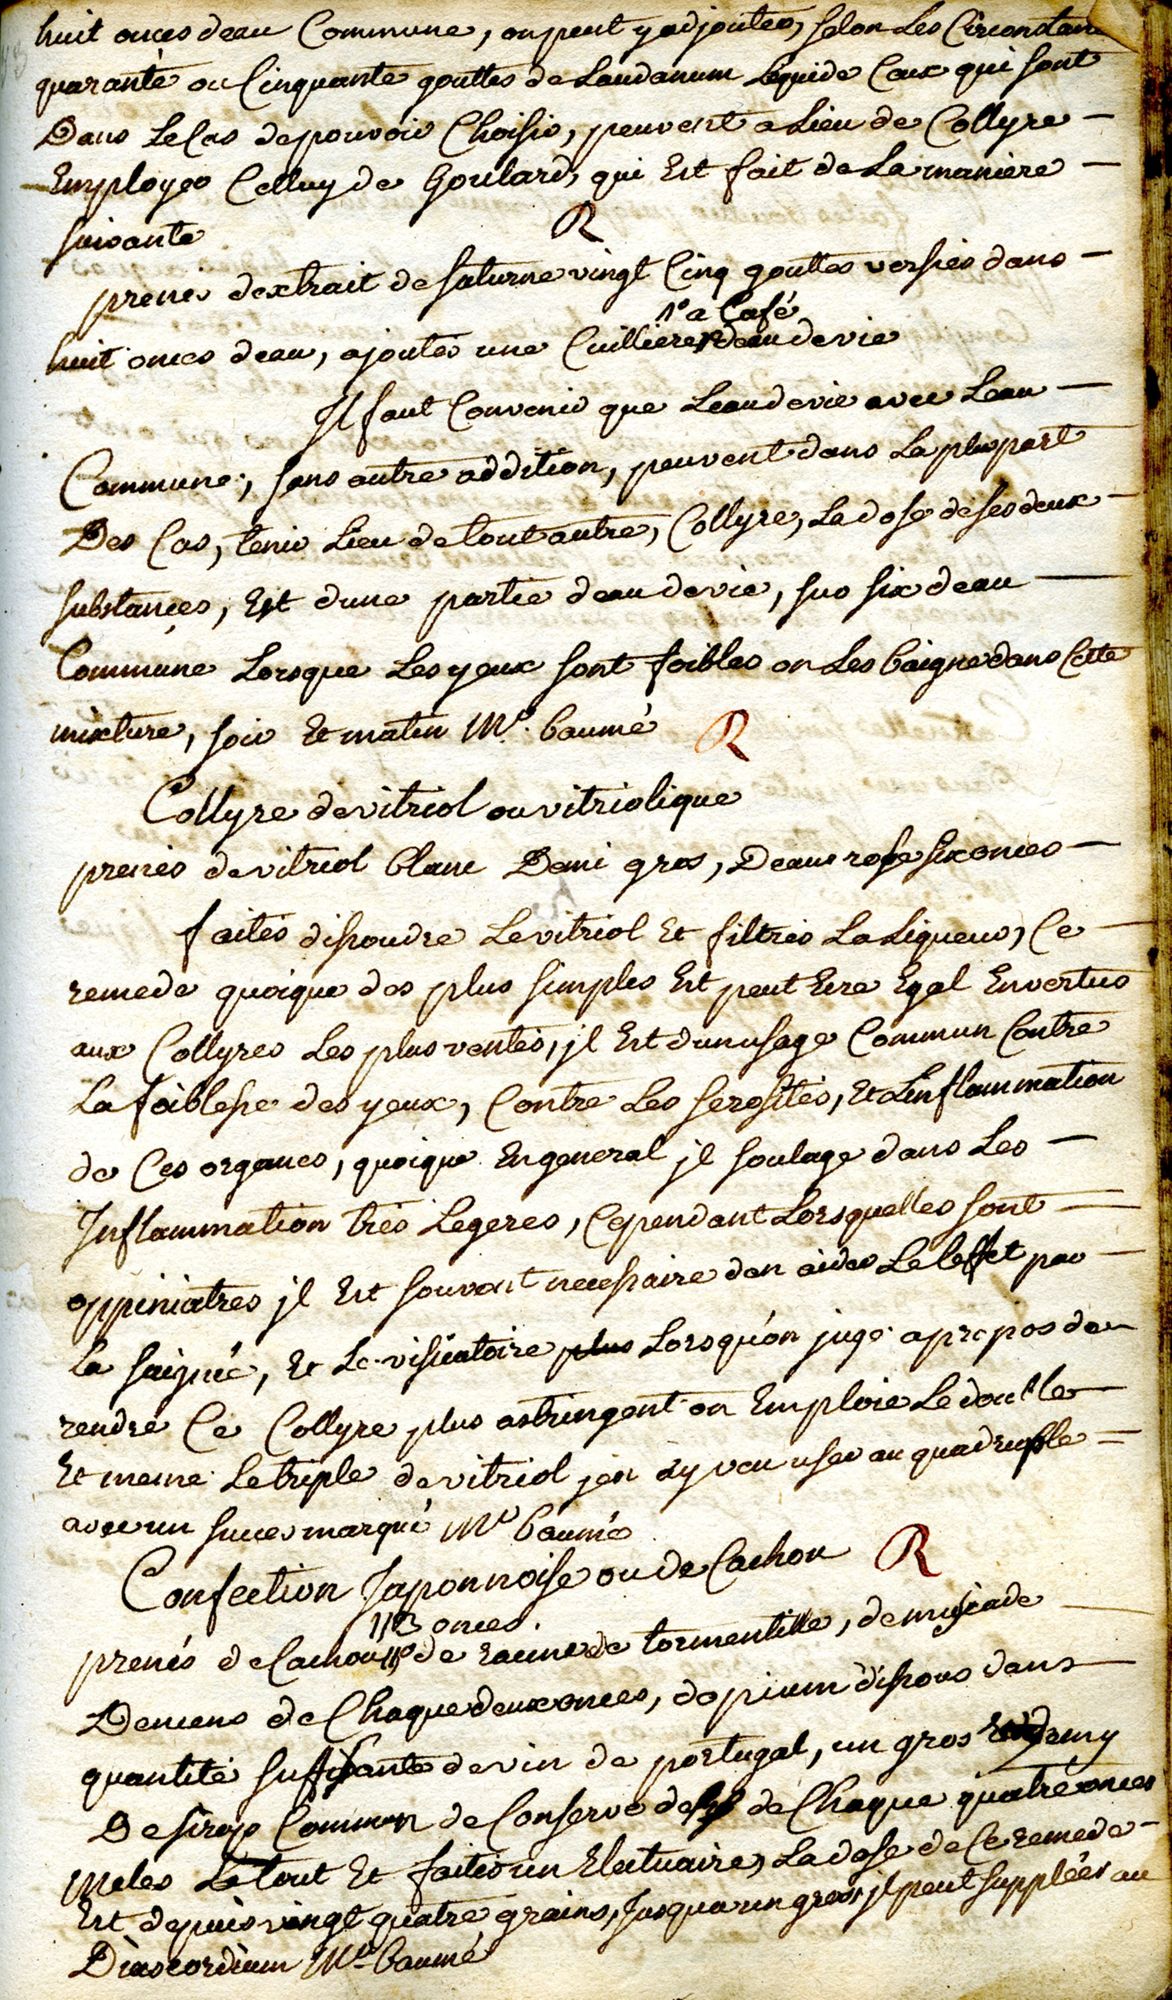 huit onces deau Commune, on peut y adjouter, selon Les Circonstan
quarante ou Cinquante gouttes de Laudanum Lequide Ceux qui sont
Dans Le Cas de pouvoir Choisir, peuvent a Lieu de Collyre –
Employer Celluy de Goulard, qui Est fait de La maniere –
suivante
R
prenés dextrait de saturne vingt Cinq gouttes versées dans –
1º a Café
huit onces deau, ajoutés une Cuilliere deau de vie
Il faut Convenir que Leau de vie avec Leau –
Commune, sans autre addition, peuvent dans La plus part
Des Cas, tenir Lieu de tout autre, Collyre, La dose de ses deux –
substances, Est dune partie deau de vie, sur six deau –
Commune Lorsque Les yeux sont foibles on Les baigne dans Cette
mixture, soir Et matin Mr. baumé R
Collyre de vitriol ou vitriolique
prenés de vitriol blanc Demi gros, Deau rose six onces –
faites dissoudre Le vitriol Et filtrés La Liqueur, Ce –
remede quoique des plus simples Est peut Etre Egal En vertus
aux Collyres Les plus ventés, jl Est dun usage Commun Contre
La foiblesse des yeux, Contre Les serosités, Et Linflammation
de Ces organes, quoique En general jl soulage dans Les –
Inflammation très Legeres, Cependant Lorsquelles sont –
oppiniatres jl Est souvent necessaire den aider Le leffet par –
La saignée, Et Le vissicatoire plus Lorsquon juge apropos de
rendre Ce Collyre plus astringent on Emploie Le double –
Et meme Le triple de vitriol jen ay veu user au quadruple –
avec un succes marqué Mr baumé
Confection Japonnoise ou de Cachou R
113 onces.
prenés de Cachou de racine de tormentille, de muscade –
Dencens de Chaque deux onces, dopium dissous dans –
quantité suffisante de vin de portugal, un gros Et demy
De sirop Commun de Conserve de de Chaque quatre onces
meles Le tout Et faites un Electuaire, La dose de Ce remede –
Est depuis vingt quatre grains, Jusqua un gros, jl peut suppléer au
Diascordium Mr baumé